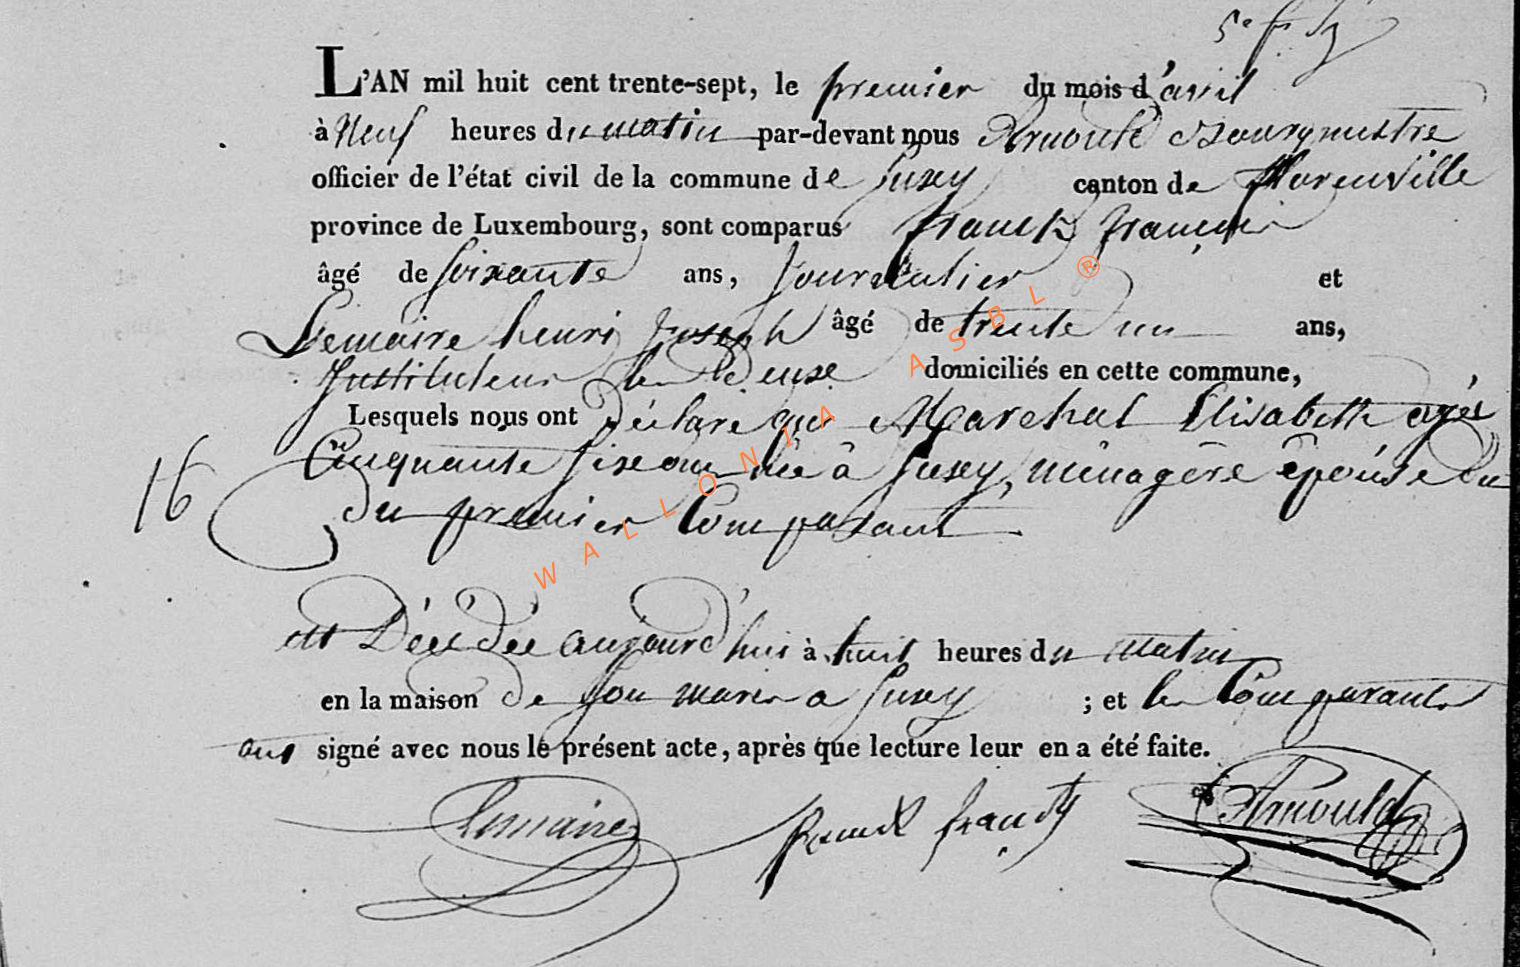 5e f
L'AN mil huit cent trente-sept, le premier du mois d'avril
à Neuf heures du matin par-devant nous Arnould Bourgmestre
officier de l'état civil de la commune de Suxy canton de florenville
province de Luxembourg, sont comparus franck françois
âgé de soixante ans, Journalier et
Lemaire henri Joseph âgé de trente un ans,
Instituteur les deux domiciliés en cette commune,
Lesquels nous ont déclaré que Marechal Elisabeth agée
Cinquante six ans née à Suxy, ménagère épouse du
16 du premier Comparant
est Décédée aujourd'hui à huit heures du matin
en la maison de son mari a Suxy ; et les Comparants
ont signé avec nous le présent acte, après que lecture leur en a été faite.
Lemaire franck Arnould
WALLONIA ASBL ®